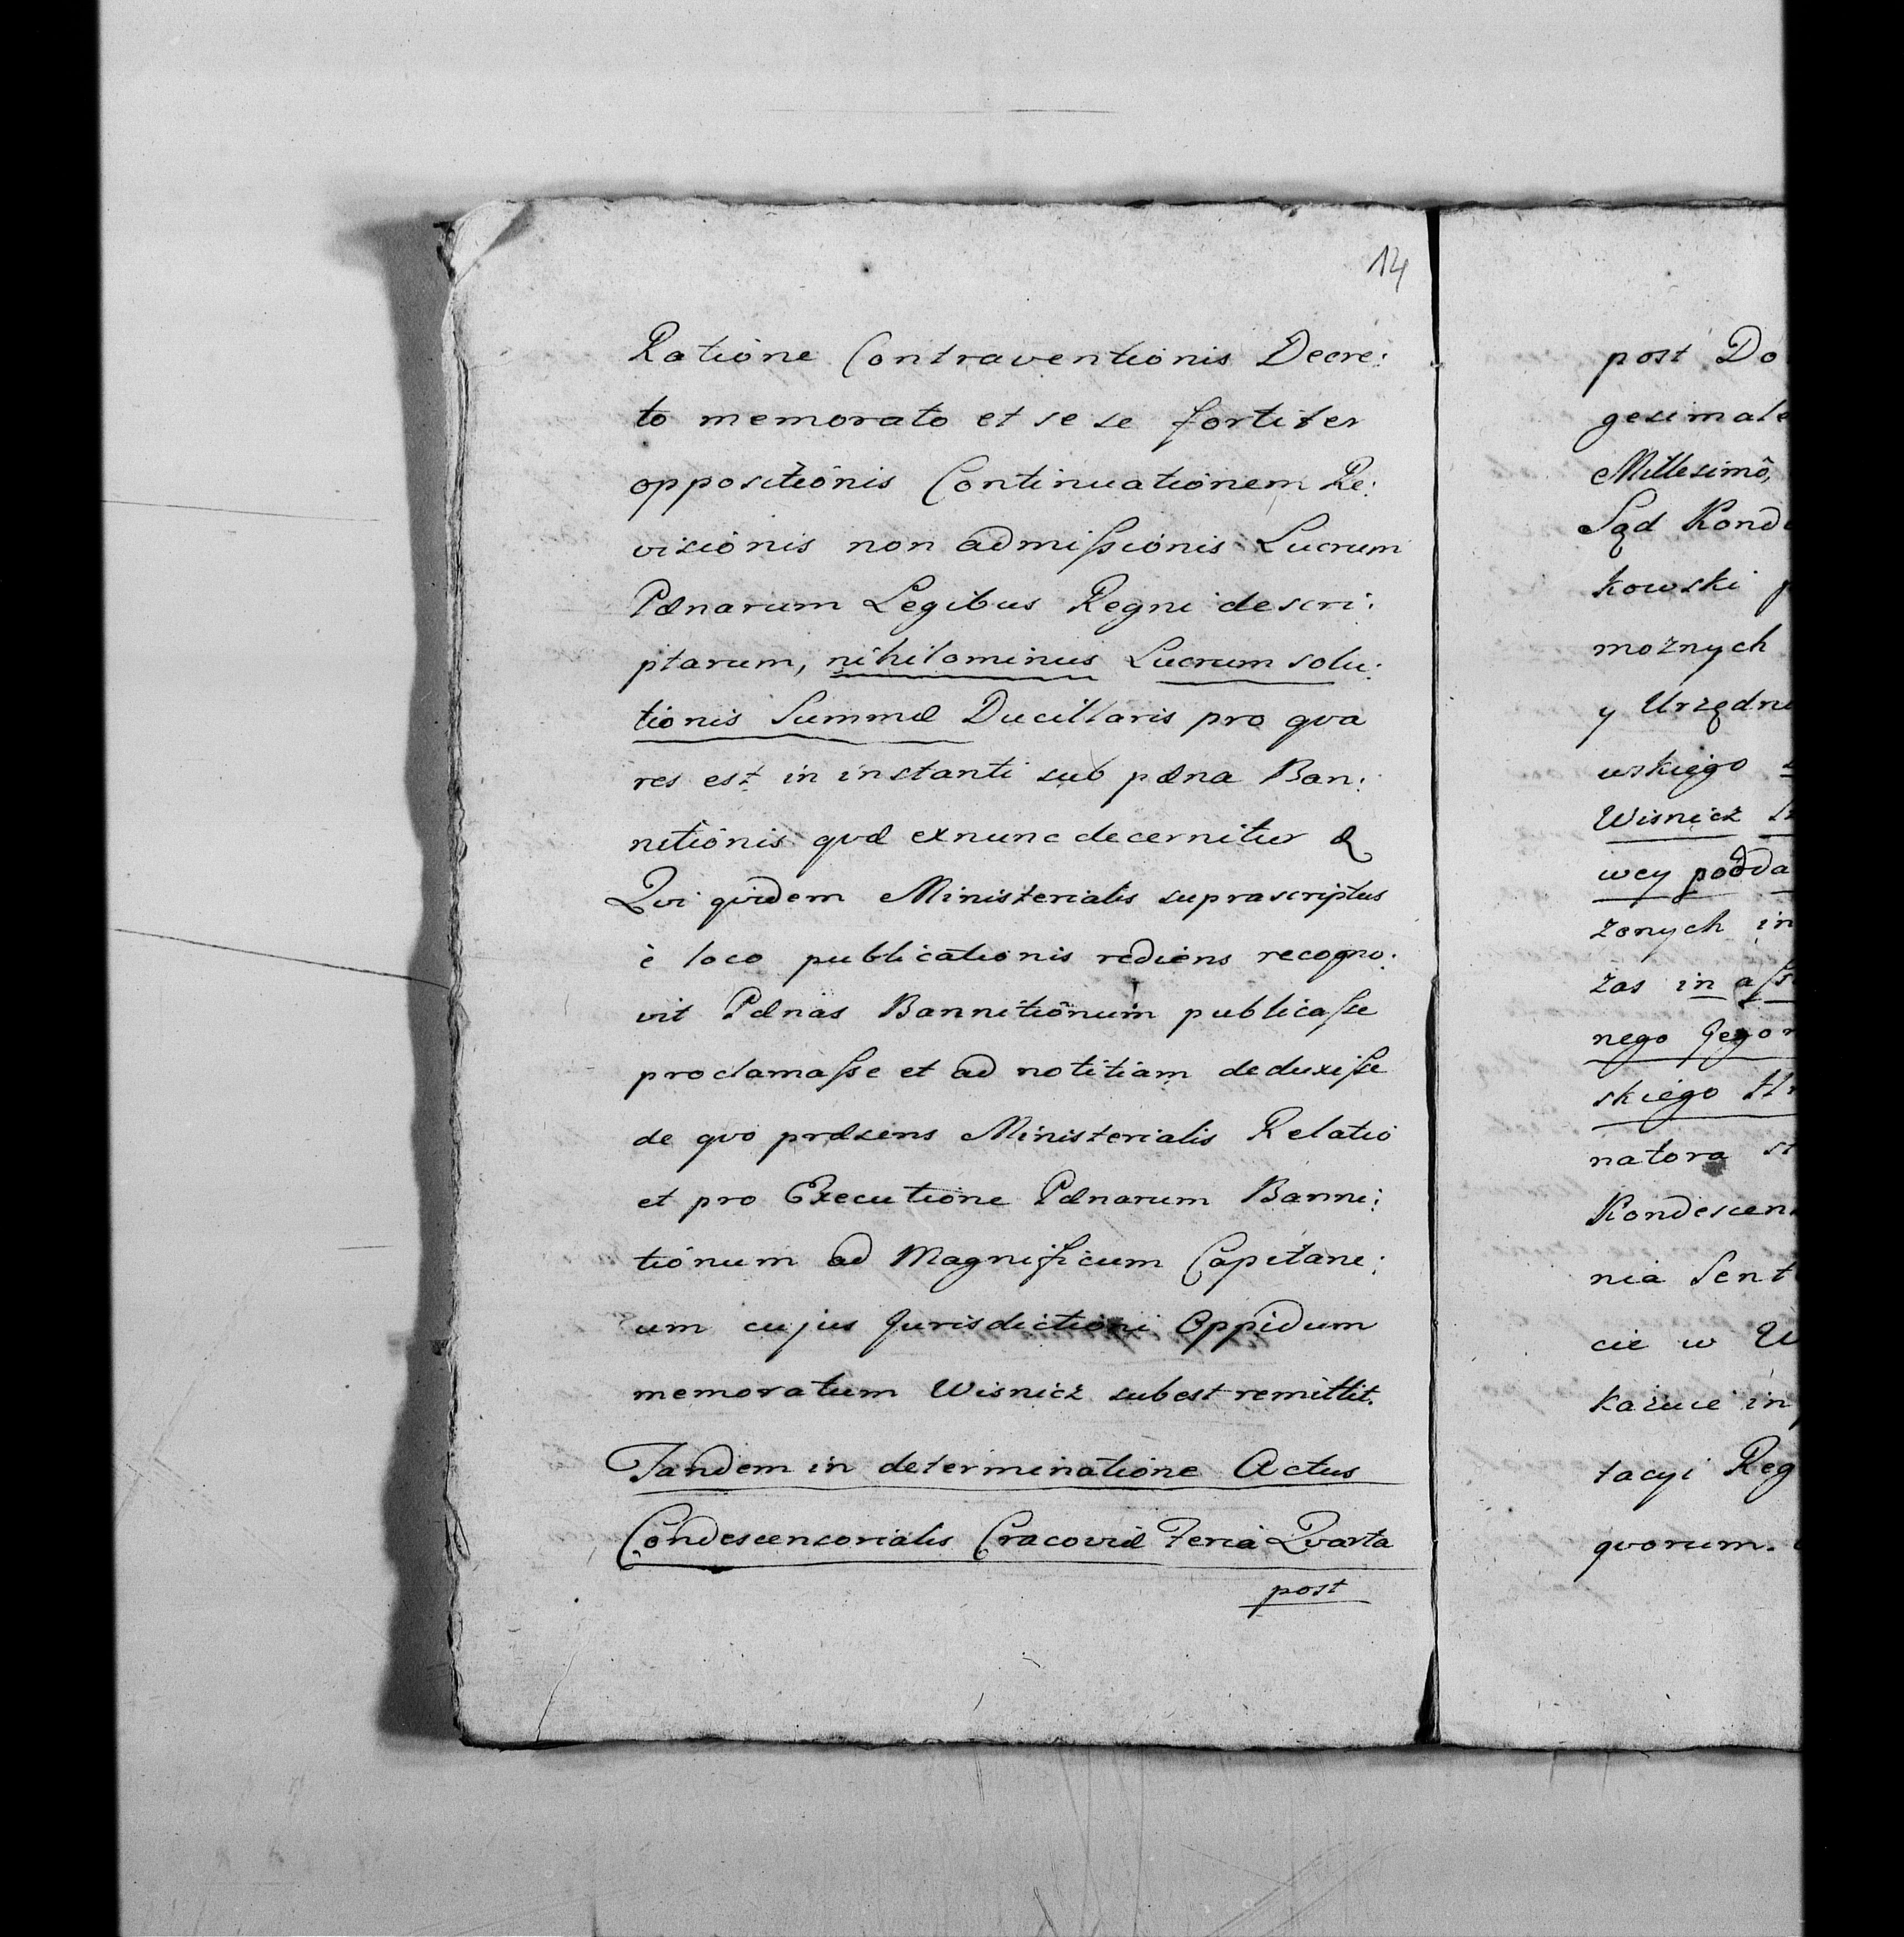 14
Ratione Contraventionis Decre:
to memorato et se se fortiter
oppositionis Continuationem Re:
visionis non admiſsionis Lucrum
Pænarum Legibus Regni descri:
ptarum, nihilominus Lucrum solu:
tionis Summæ Ducillaris pro qva
res est in instanti sub pæna Ban:
nitionis qvæ exnunc decernitur &
Qvi qvidem Ministerialis suprascriptus
è loco publicationis rediens recogno:
vit Pænas Bannitionum publicaſse
proclamaſse et ad notitiam deduxiſse
de qvo præsens Ministerialis Relatio
et pro Executione Pænarum Banni:
tionum ad Magnificum Capitane:
um cujus Jurisdictioni Oppidum
memoratum Wisnicz subest remittit.
Tandem in determinatione Actus
Condescensorialis Cracoviæ Feria Qvarta
post
post Do
gesimale
Millesimô,
Sąd Konde
kowski p
możnych
y Urzędni
wskiego
Wisnicz
wey podda
zonych in
zas in aſs
nego Jegom
skiego
natora
Kondescen
nia Sent
cie w
każuie in
tacyi Reg
qvorum.